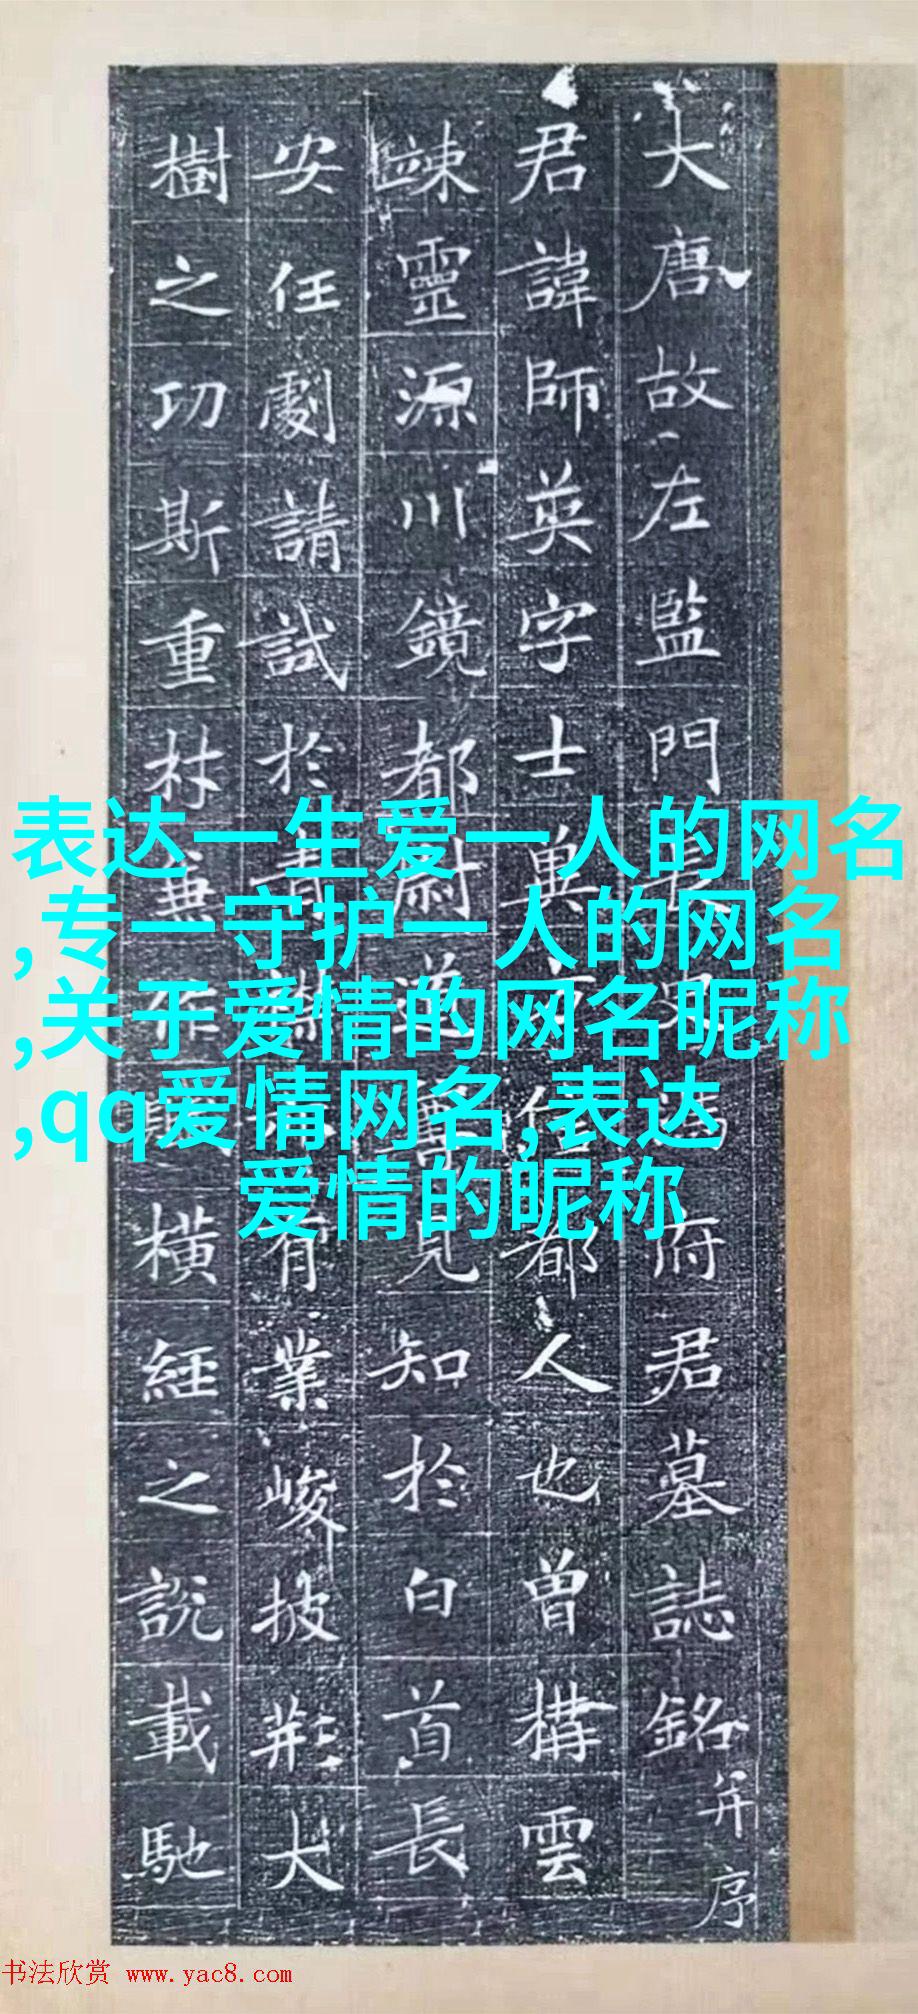 大唐故左監門府君墓誌銘并序
君諱師英字士都人也曾構雲
竦靈源川鏡都尉見知於白首長
安任劇請試於有業峻披荊大
樹之功斯重材兼作橫經之說載馳
表达一生爱一人的网名
,专一守护一人的网名
,关于爱情的网名昵称
,qq爱情网名,表达
爱情的昵称
书法欣赏 www.yac8.com